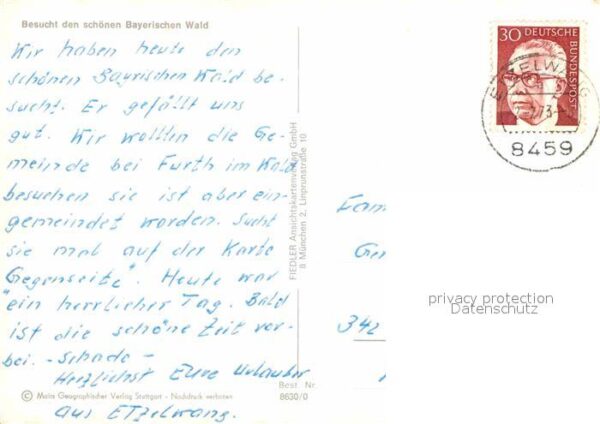 Besucht den schönen Bayerischen Wald
Wir haben heute den
schönen Bayrischen Wald be-
sucht. Er gefällt uns
gut. Wir wollten die Ge-
meinde bei Furth im Wald
besuchen sie ist aber ein-
gemeindet worden. Sucht
sie mal auf der Karte
Gegenseite". Heute war
"ein herrlicher Tag. Bald
ist die schöne Zeit vor-
bei. -Schade-
Herzlichst Eure Urlauber
aus Etzelwang.
© Mairs Geographischer Verlag Stuttgart - Nachdruck verboten
Best. Nr.
8630/0
FIEDLER Ansichtskartenverlag GmbH
8 München 2, Linprunstraße 10
30 DEUTSCHE
BUNDESPOST
ETZELWANG
8459
Fam
342
privacy protection
Datenschutz